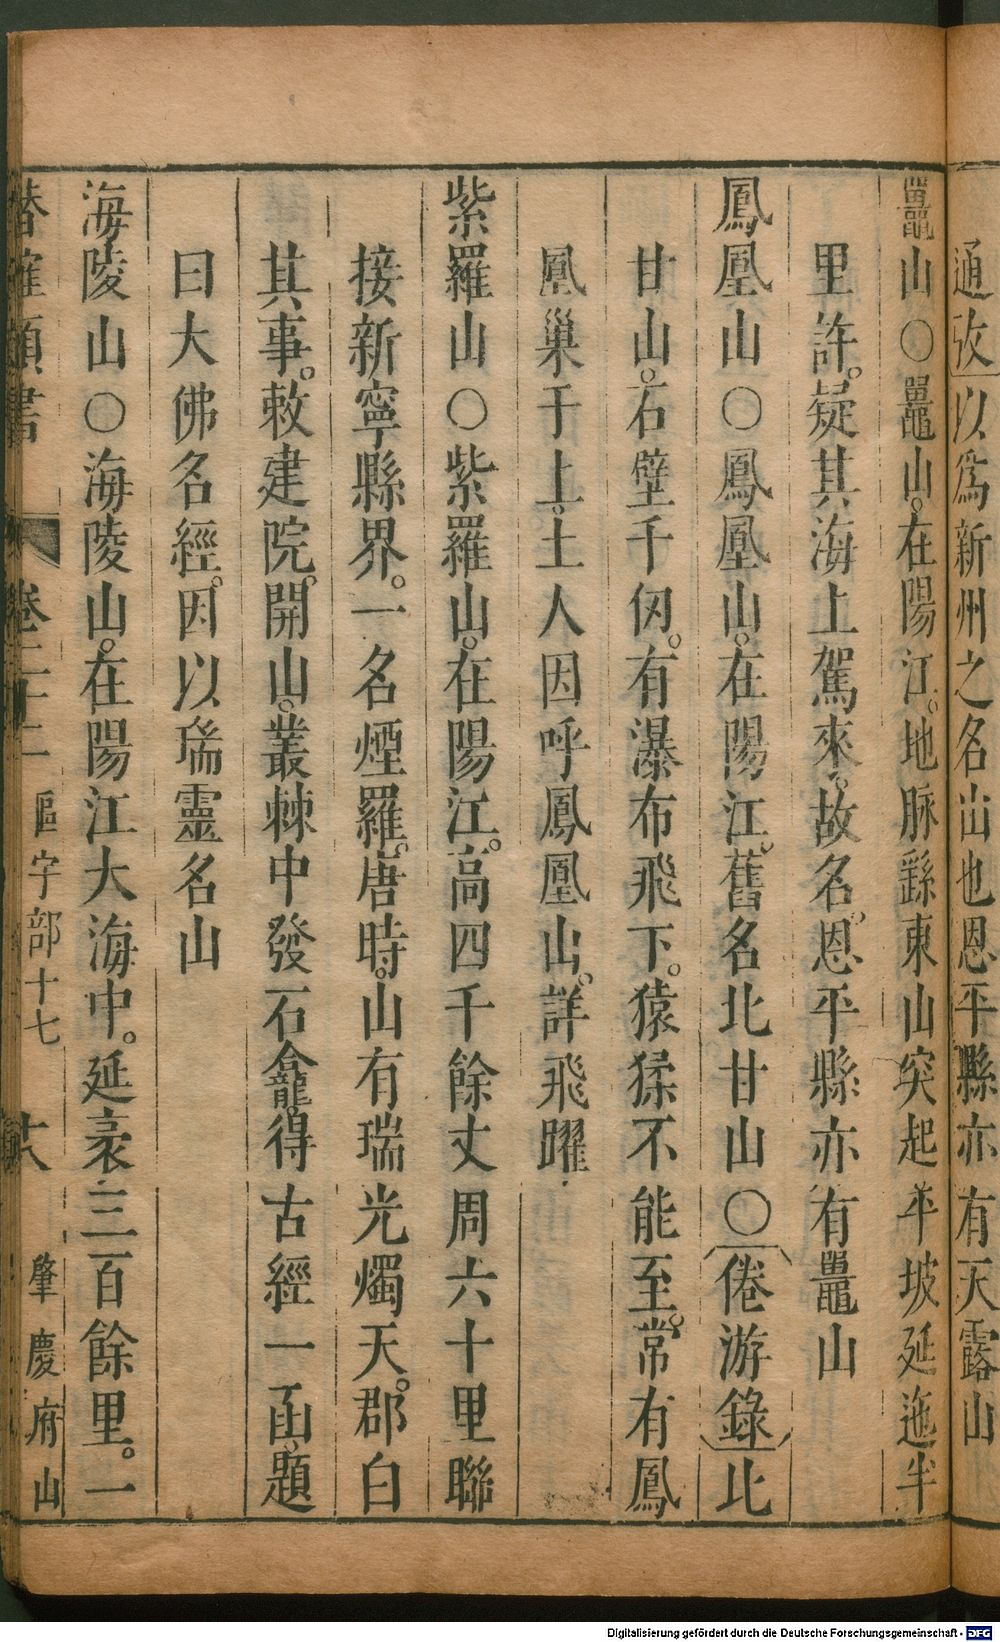 通攷以爲新州之名山也恩平縣亦有天露山
鼉山○鼉山在陽江地脉繇東山突起平坡延迤半
里許疑其海上駕來故名恩平縣亦有鼉山
鳳凰山○鳳凰山在陽江舊名北甘山○倦游錄北
甘山石壁千仞有瀑布飛下猿猱不能至常有鳳
凰巢于上土人因呼鳳凰山詳飛躍
紫羅山○紫羅山在陽江高四千餘丈周六十里聯
接新寧縣界一名煙羅唐時山有瑞光燭天郡白
其事敕建院開山叢棘中發石龕得古經一函題
曰大佛名經因以瑞靈名山
海陵山○海陵山在陽江大海中延袤三百餘里一
潛確類書 卷二十二 區宇部十七 十八 肇慶府山
Digitalisierung gefördert durch die Deutsche Forschungsgemeinschaft - DFG